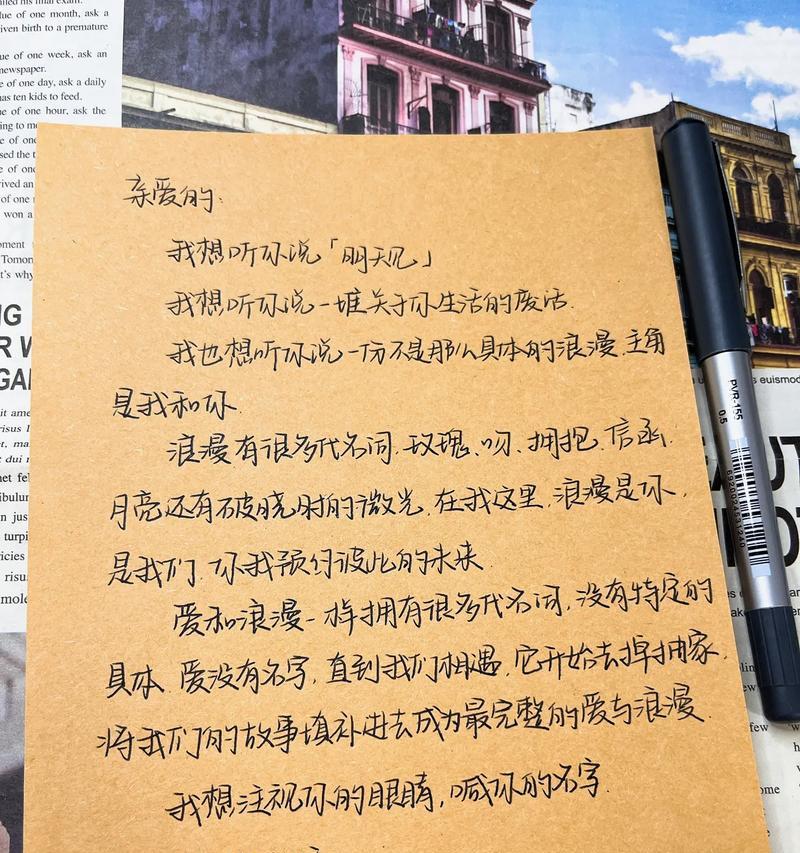 亲爱的:
我想听你说「明天见」
我想听你说一堆关于你生活的废话.
我也想听你说一份不是那么具体的浪漫.主角
是我和你.
浪漫有很多代名词.玫瑰、吻、拥抱、信函.
月亮还有破晓时的微光.在我这里,浪漫是你,
是我们.你我预付彼此的未来.
爱和浪漫一样拥有很多代名词,没有特定的
具体.爱没有名字,直到我们相遇,它开始去掉抽象,
将我们的故事填补进去成为最完整的爱与浪漫.
我想注视你的眼睛,喊你的名字.
lue of one month, ask a
iven birth to a premature
ue of one week, ask an
newspaper.
e of one day, ask a daily
has ten kids to feed.
e of one hour, ask the
PVR-155
0.5
euismod